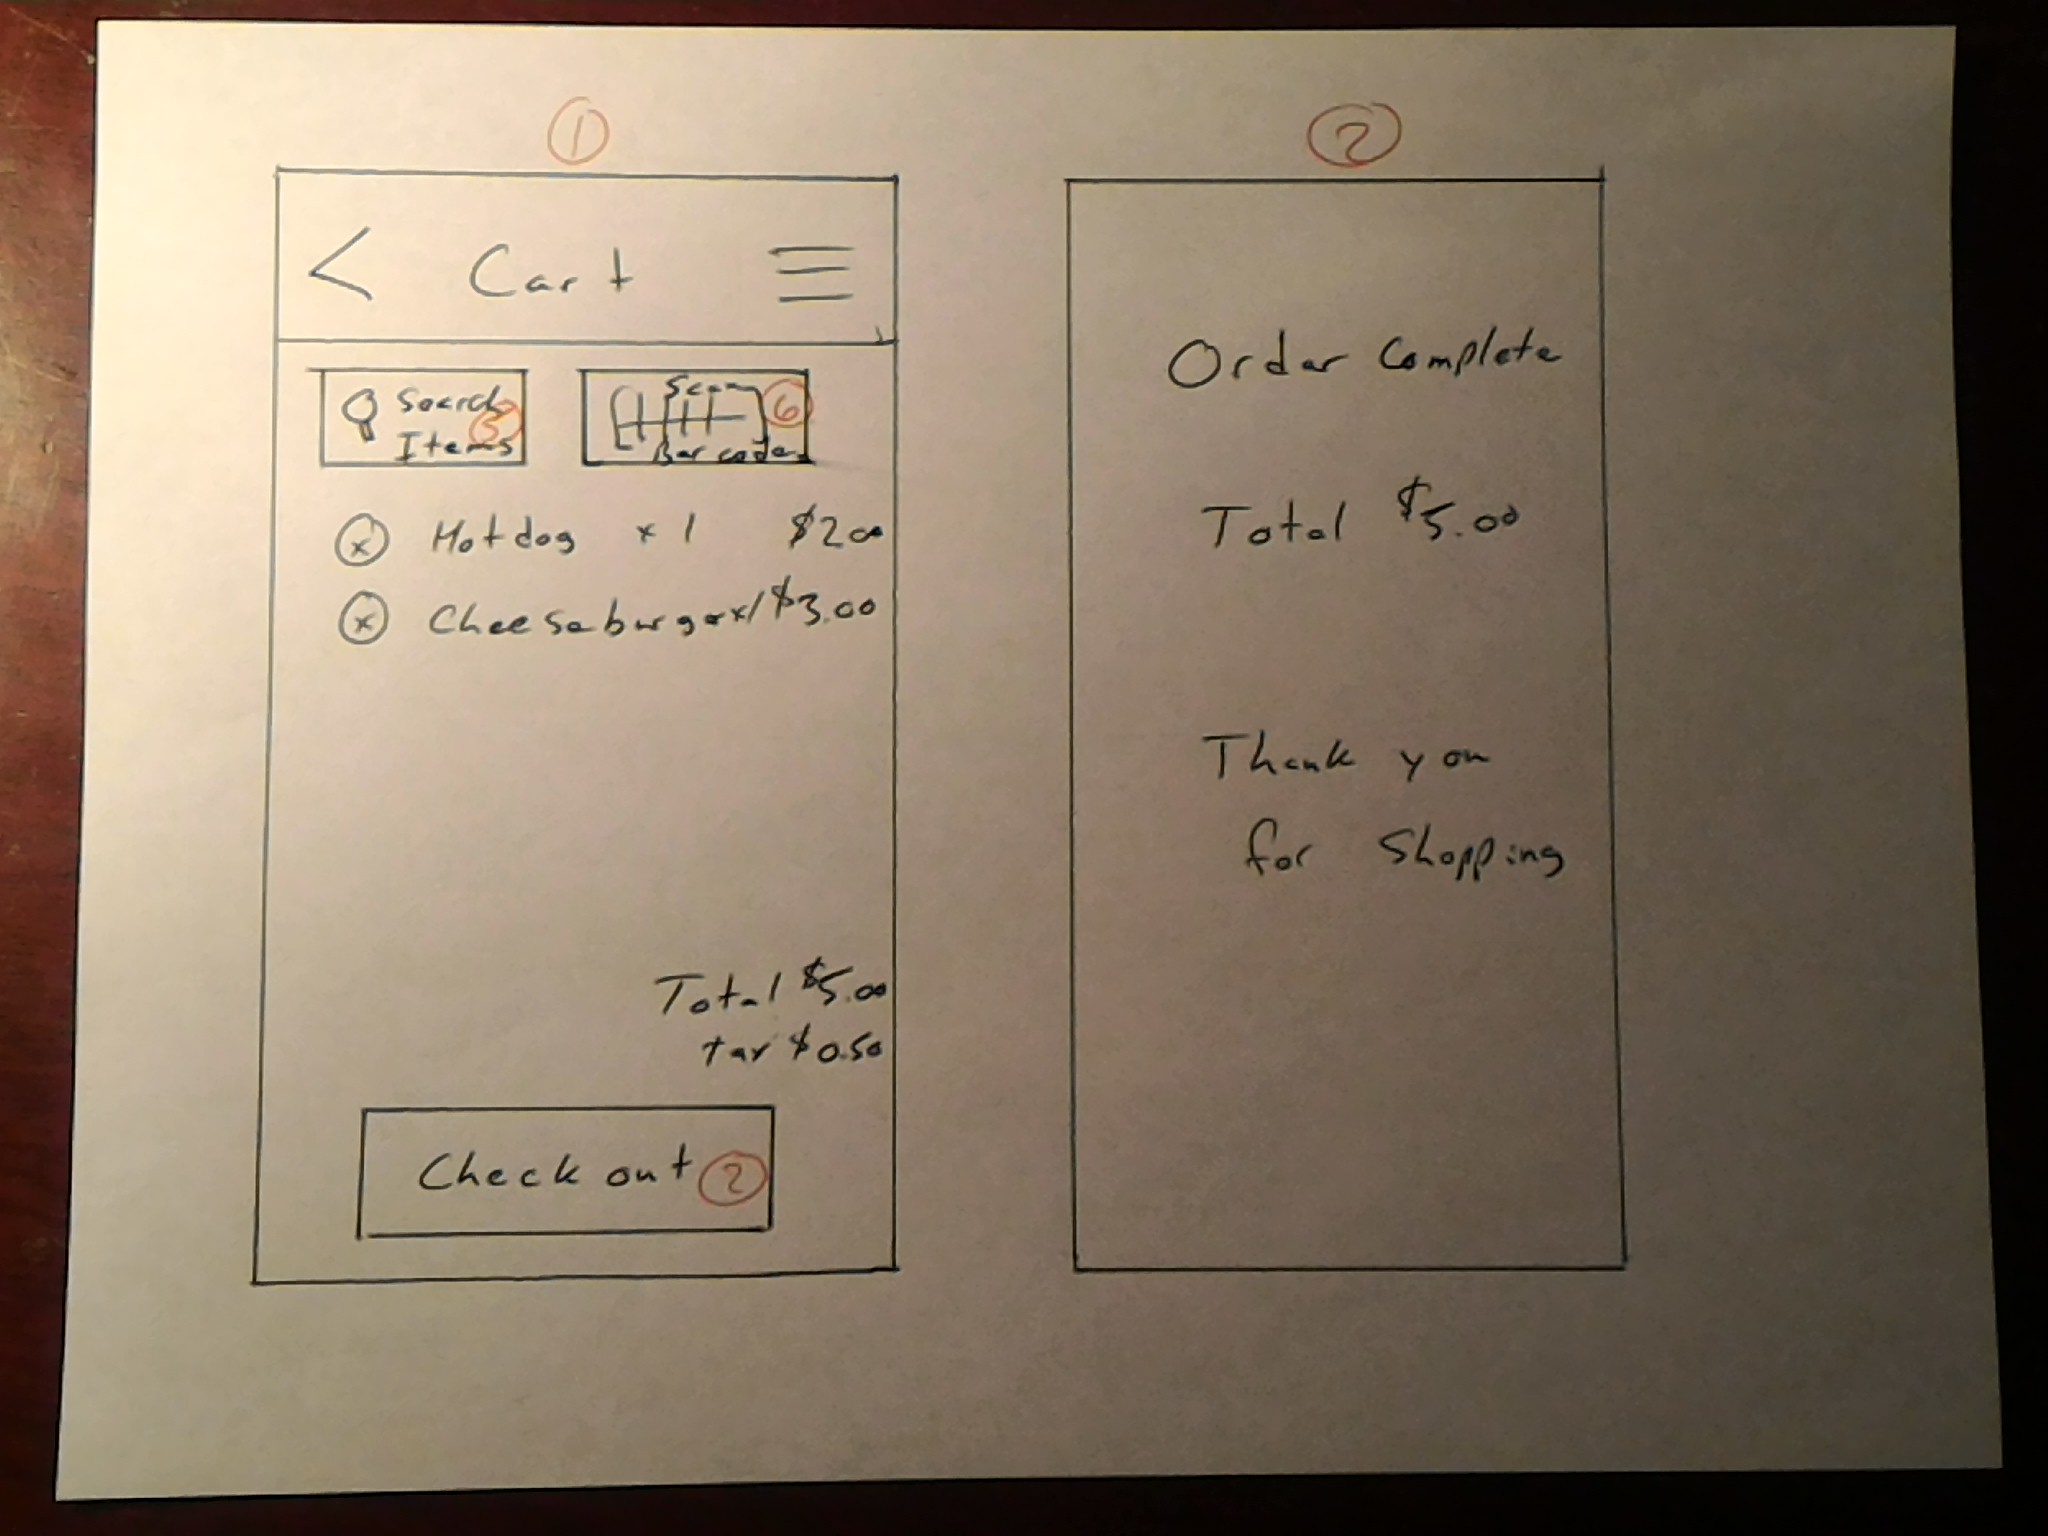 1
< Cart
Search
Items
5
Scan
Barcode
6
x Hotdog x 1 $2.00
x Cheeseburger x1 $3.00
Total $5.00
tax $0.50
Check out 2
2
Order Complete
Total $5.00
Thank you
for Shopping